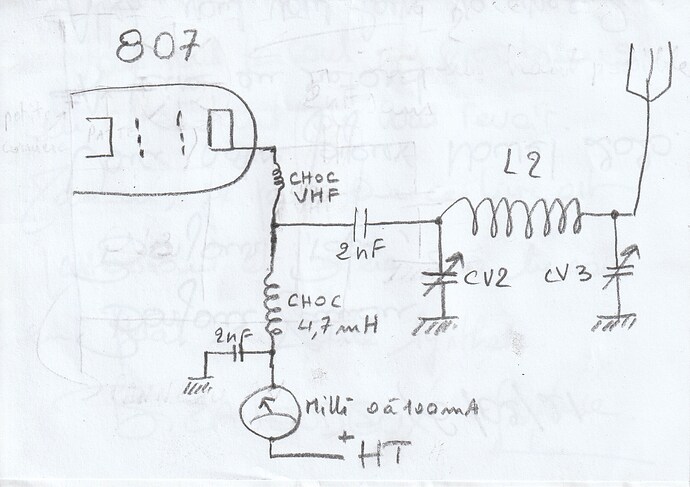 807
CHOC
VHF
L2
2nF
CV2
CV3
CHOC
4,7mH
2nF
Milli 0à100mA
+
HT